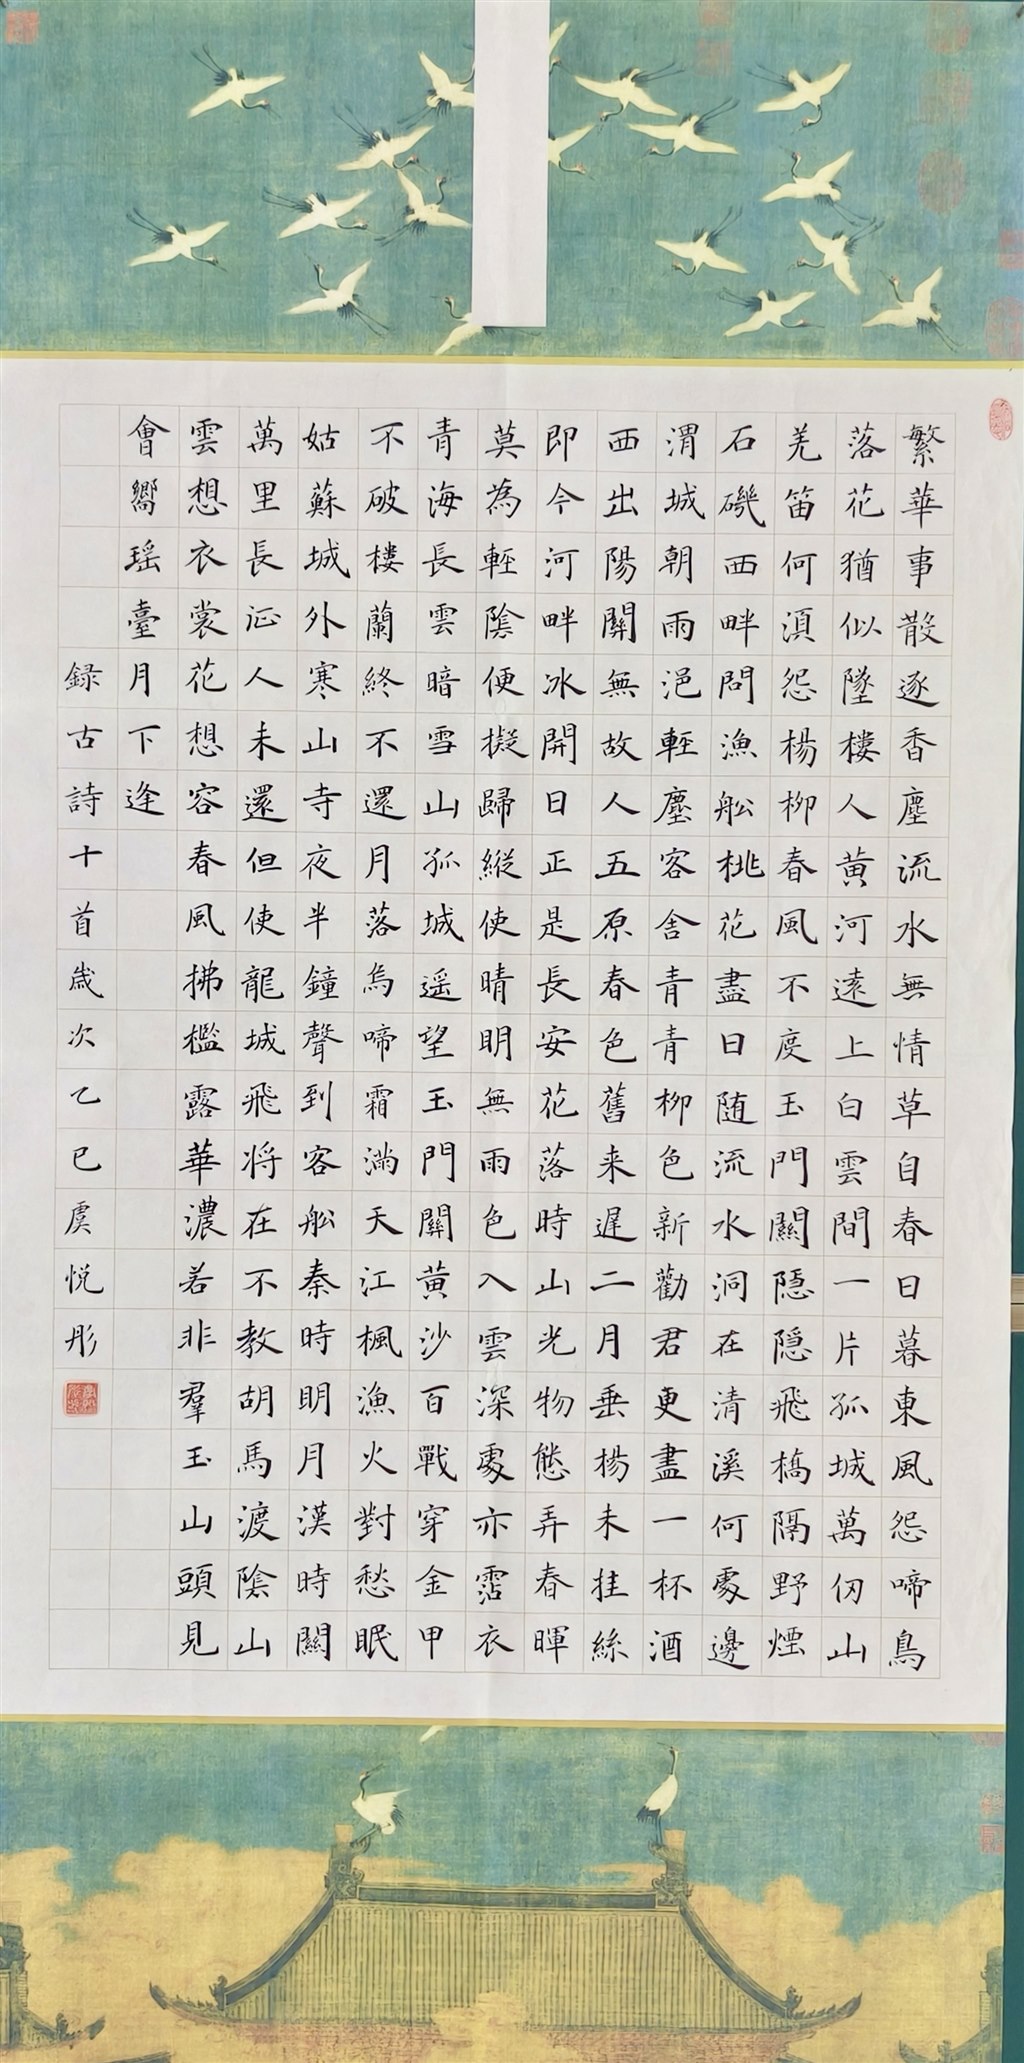 繁華事散逐香塵流水無情草自春日暮東風怨啼鳥
落花猶似墜樓人黃河遠上白雲間一片孤城萬仞山
羌笛何須怨楊柳春風不度玉門關隱隱飛橋隔野煙
石磯西畔問漁船桃花盡日隨流水洞在清溪何處邊
渭城朝雨浥輕塵客舍青青柳色新勸君更盡一杯酒
西出陽關無故人五原春色舊来遲二月垂楊未挂絲
即今河畔冰開日正是長安花落時山光物態弄春暉
莫為輕陰便擬歸縱使晴明無雨色入雲深處亦霑衣
青海長雲暗雪山孤城遥望玉門關黃沙百戰穿金甲
不破樓蘭終不還月落烏啼霜滿天江楓漁火對愁眠
姑蘇城外寒山寺夜半鐘聲到客船秦時明月漢時關
萬里長征人未還但使龍城飛将在不教胡馬渡陰山
雲想衣裳花想容春風拂檻露華濃若非羣玉山頭見
會嚮瑶臺月下逢
録古詩十首歲次乙巳虞悦彤